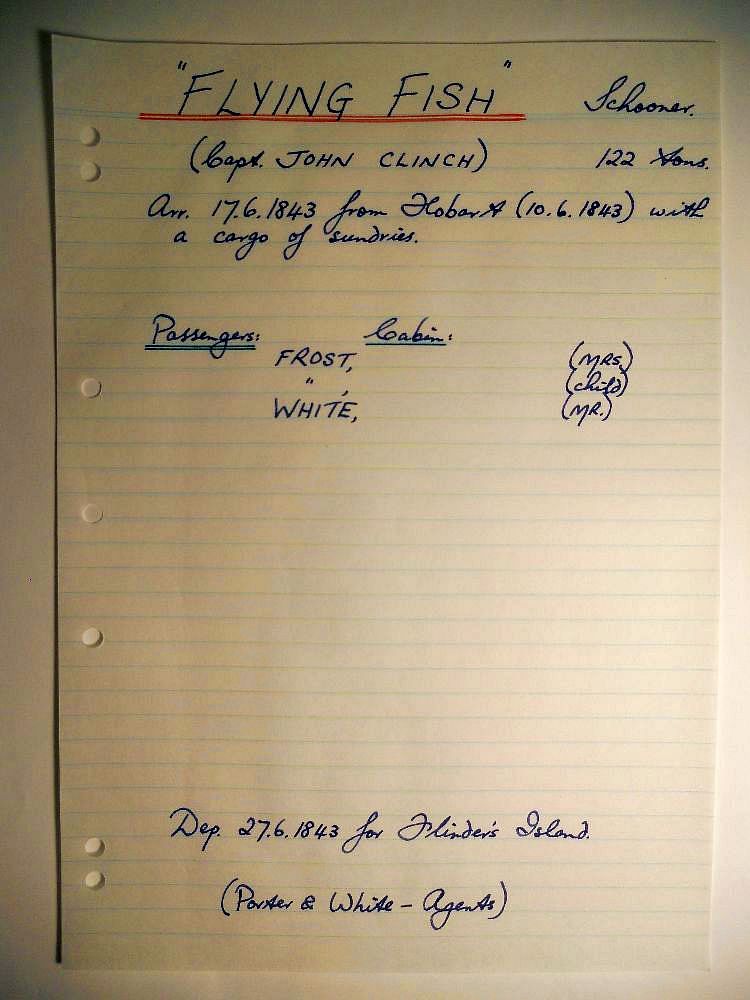 "FLYING FISH" Schooner.
(Capt. JOHN CLINCH) 122 tons.
Arr. 17.6.1843 from Hobart (10.6.1843) with
a cargo of sundries.
Passengers: Cabin:
FROST, (MRS.)
" , (child)
WHITE, (MR.)
Dep. 27.6.1843 for Flinder's Island.
(Porter & White - Agents)